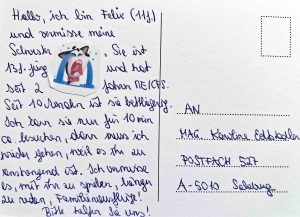 Hallo, ich bin Felix (11J.)
und vermisse meine
Schwester. Sie ist
13J. jung und hat
seit 2 Jahren ME/CFS.
Seit 10 Monaten ist sie bettlägerig.
Ich kann sie nur für 10 min
besuchen, dann muss ich
wieder gehen, weil es ihr zu
anstrengend ist. Ich vermisse
es, mit ihr zu spielen, länger
zu reden, Familienausflüge!
Bitte helfen Sie uns!
AN
MAG. Karoline Edtstadler
POSTFACH 527
A-5010 Salzburg